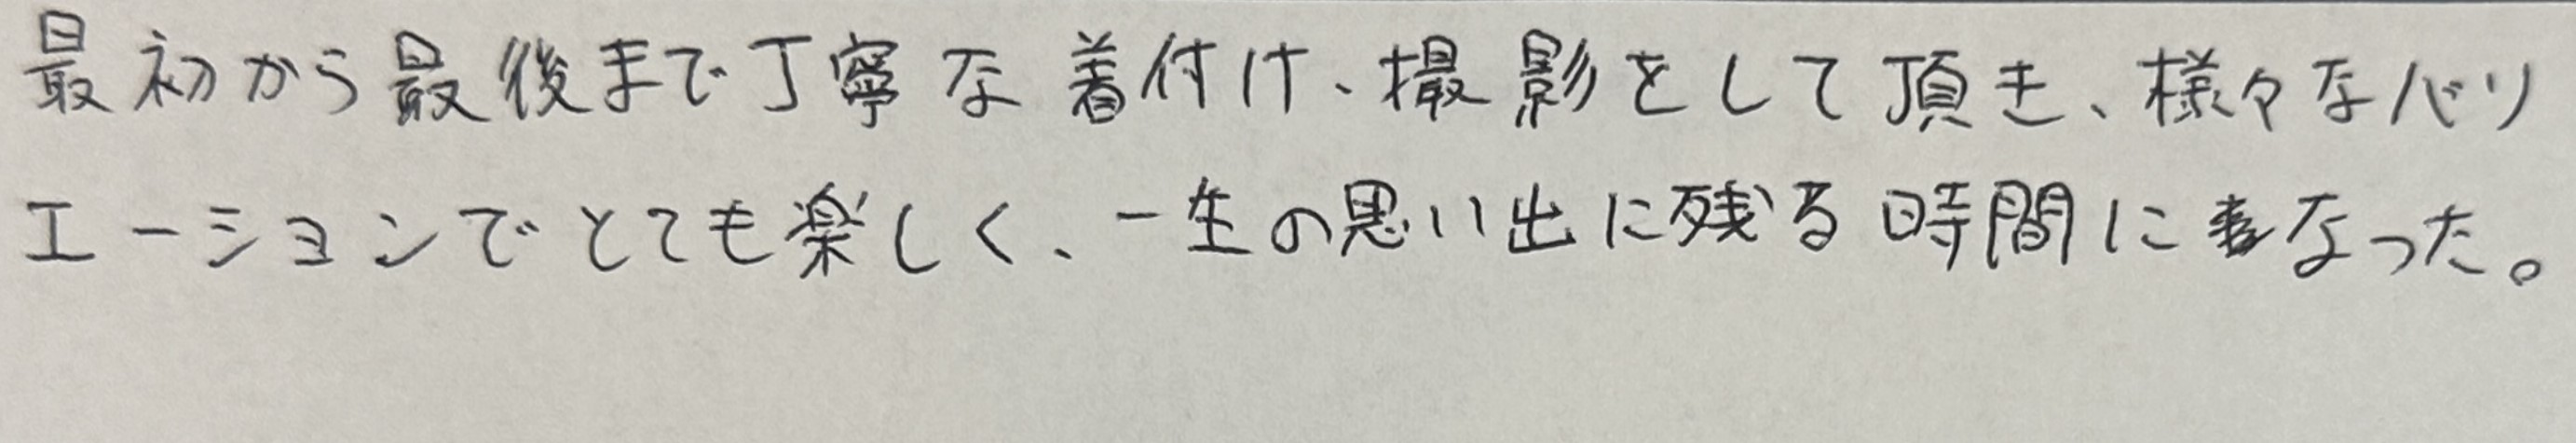 最初から最後まで丁寧な着付け、撮影をして頂き、様々なバリ
エーションでとても楽しく、一生の思い出に残る時間になった。